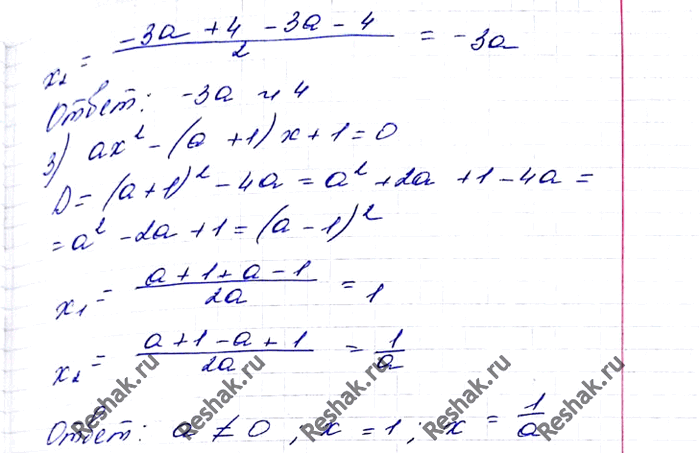 x₂ = (-3a + 4 - 3a - 4)/2 = -3a
Ответ: -3a и 4
3) ax² - (a + 1)x + 1 = 0
D = (a+1)² - 4a = a² + 2a + 1 - 4a =
= a² - 2a + 1 = (a - 1)²
x₁ = (a + 1 + a - 1)/2a = 1
x₂ = (a + 1 - a + 1)/2a = 1/a
Ответ: a ≠ 0 ; x = 1 ; x = 1/a
Reshak.ru Reshak.ru Reshak.ru Reshak.ru Reshak.ru